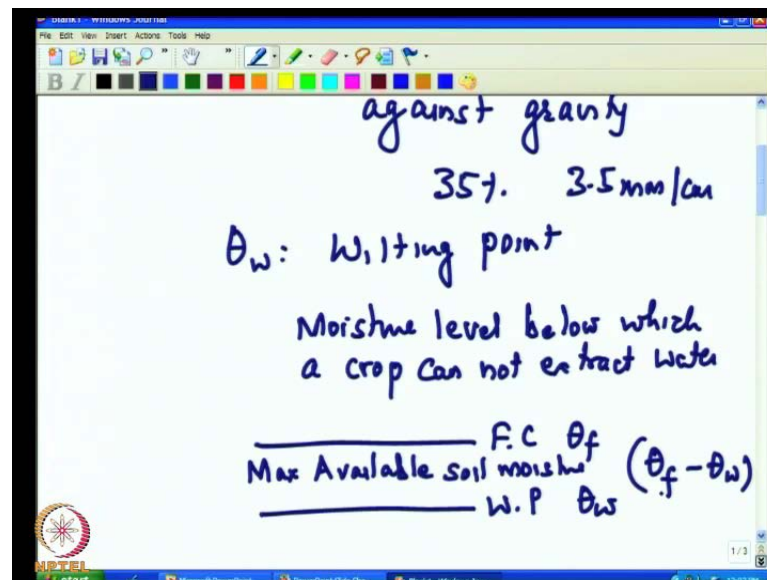 Blank1 - Windows Journal
File Edit View Insert Actions Tools Help
B I
against gravity
35%. 3.5 mm/cm
θw: Wilting point
Moisture level below which
a crop can not extract water
F.C θf
Max Available soil moisture (θf - θw)
W.P θw
1/3
NPTEL
start